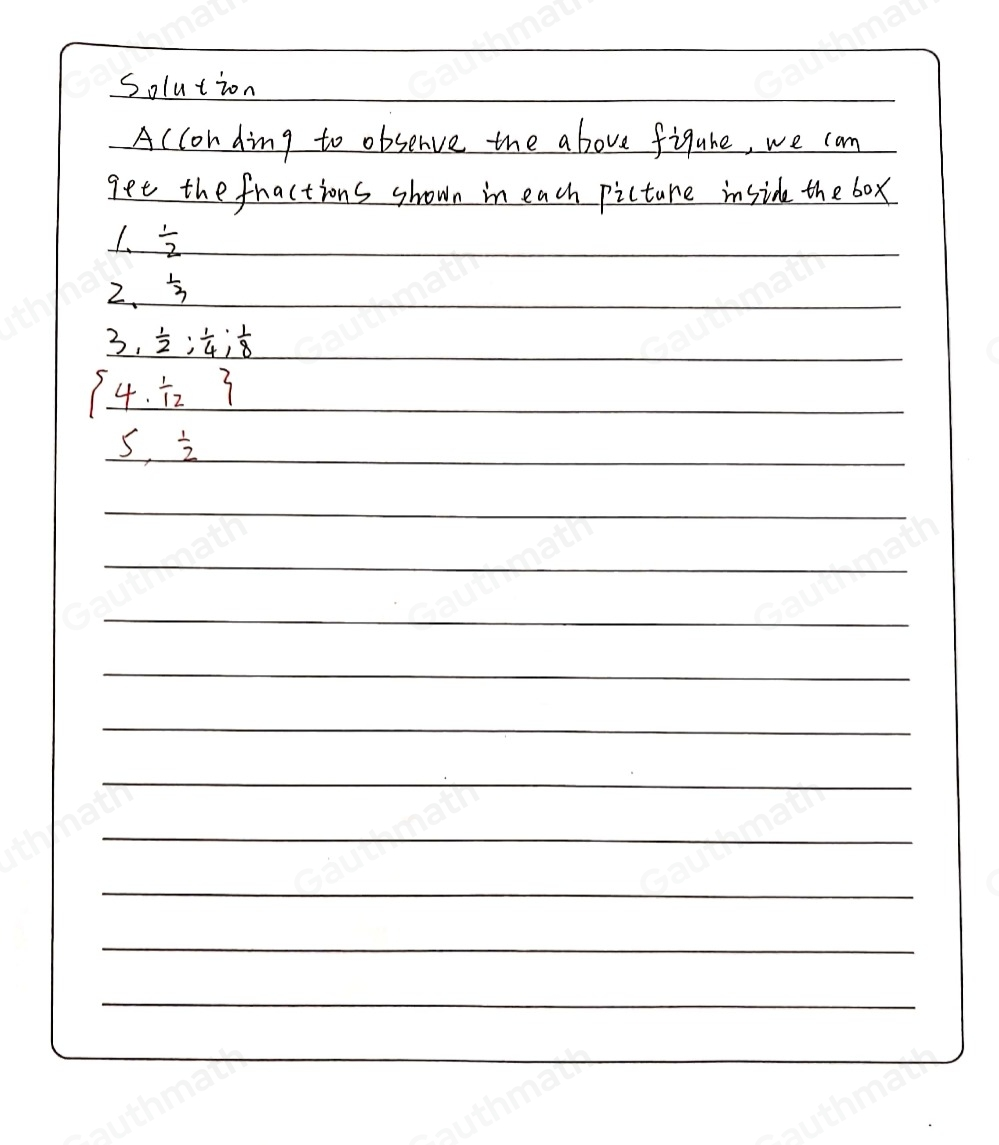 Solution
According to observe the above figure, we can
get the fractions shown in each picture inside the box
1. 1/2
2. 1/3
3. 1/2 ; 1/4 ; 1/8
{ 4. 1/12 }
5. 1/2
Gauthmath